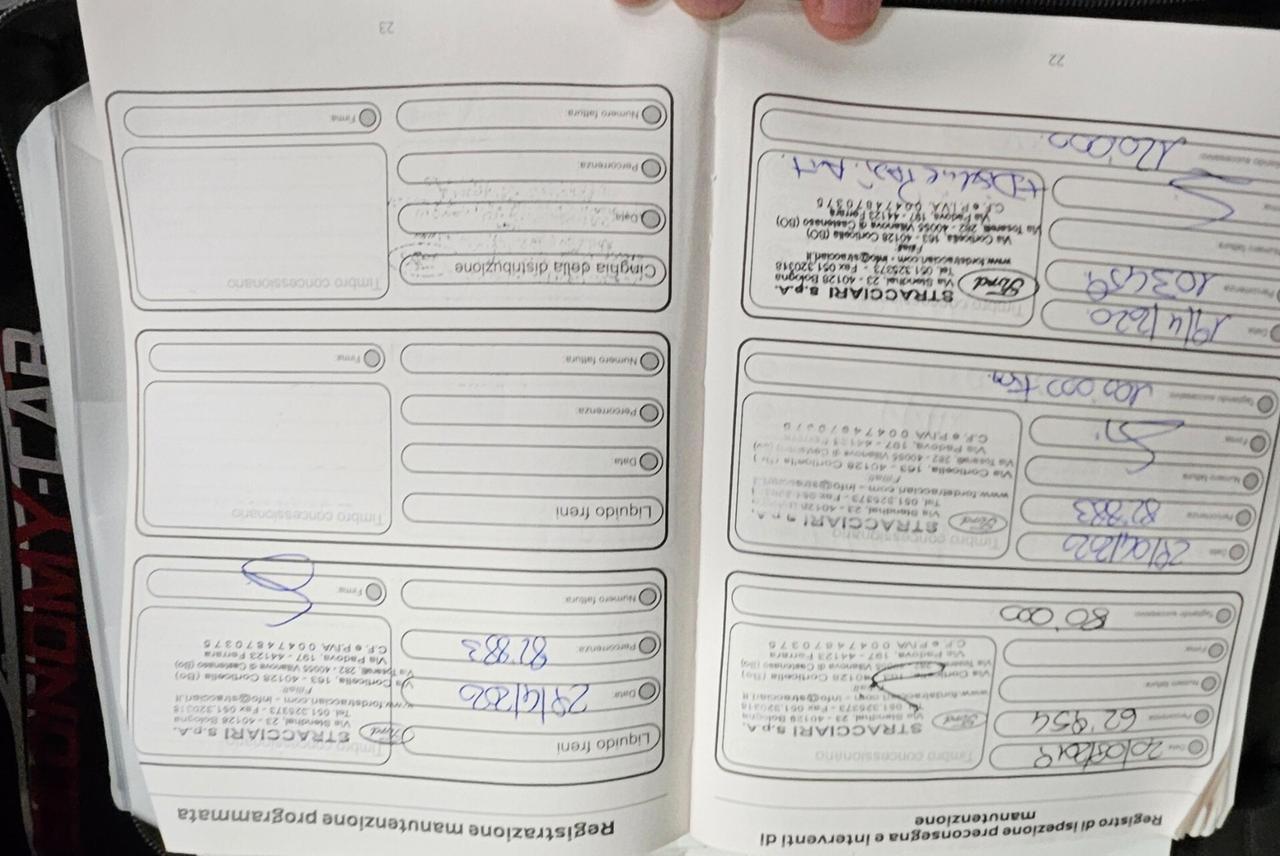 Registro di ispezione preconsegna e interventi di
manutenzione
Data
Percorrenza
62'954
Numero fattura
Firma
Tagliando successivo:
80'000
Timbro concessionario
Ford
STRACCIARI S.p.A.
Via Stendhal, 23 - 40128 Bologna
Tel. 051.325373 - Fax 051.320318
www.fordstracciari.com - info@stracciari.it
Filiali:
Via Corticella, 163 - 40128 Corticella (BO)
Via Tosarelli, 282 - 40055 Villanova di Castenaso (BO)
Via Padova, 197 - 44123 Ferrara
C.F. e P.IVA 00474870375
Data
Percorrenza
82'883
Numero fattura
Firma
Tagliando successivo:
100'000 km
Timbro concessionario
Ford
STRACCIARI S.p.A.
Via Stendhal, 23 - 40128
Tel. 051.325373 - Fax 051
www.fordstracciari.com - info@stracciari
Filiali:
Via Corticella, 163 - 40128 Corticella
Via Tosarelli, 282 - 40055 Villanova di
Via Padova, 197 - 44123 Ferrara
C.F. e P.IVA 00474870375
Data
Percorrenza
103459
Numero fattura
Firma
Tagliando successivo:
120'000
Timbro concessionario
Ford
STRACCIARI S.p.A.
Via Stendhal, 23 - 40128 Bologna
Tel. 051.325373 - Fax 051.320318
www.fordstracciari.com - info@stracciari.it
Filiali:
Via Corticella, 163 - 40128 Corticella (BO)
Via Tosarelli, 282 - 40055 Villanova di Castenaso (BO)
Via Padova, 197 - 44123 Ferrara
C.F. e P.IVA 00474870375
22
Registrazione manutenzione programmata
Liquido freni
Data:
Percorrenza:
82'883
Numero fattura:
Timbro concessionario
Ford
STRACCIARI S.p.A.
Via Stendhal, 23 - 40128 Bologna
Tel. 051.325373 - Fax 051.320318
www.fordstracciari.com - info@stracciari.it
Filiali:
Via Corticella, 163 - 40128 Corticella (BO)
Via Tosarelli, 282 - 40055 Villanova di Castenaso (BO)
Via Padova, 197 - 44123 Ferrara
C.F. e P.IVA 00474870375
Firma:
Liquido freni
Data
Percorrenza:
Numero fattura:
Timbro concessionario
Firma:
Cinghia della distribuzione
Data:
Percorrenza:
Numero fattura:
Timbro concessionario
Firma:
23